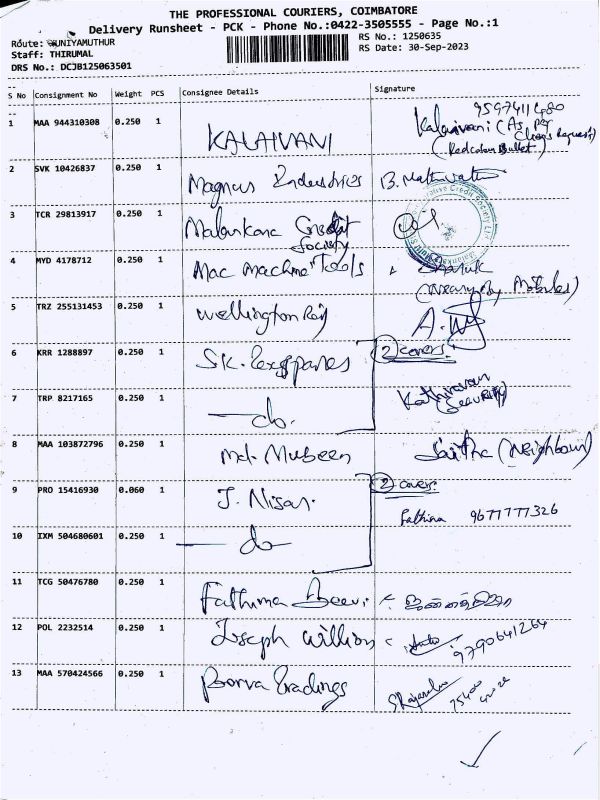 THE PROFESSIONAL COURIERS, COIMBATORE
Delivery Runsheet - PCK - Phone No.:0422-3505555 - Page No.:1
Route: KUNIYAMUTHUR
RS No.: 1250635
Staff: THIRUMAL
RS Date: 30-Sep-2023
DRS No.: DCJB125063501
S No Consignment No Weight PCS Consignee Details Signature
1 MAA 944310308 0.250 1 KALAIVANI
9597411480
Kalaivani (As per
Cleans Request)
(Redcolour Bullet)
2 SVK 10426837 0.250 1 Magnus Industries
3 TCR 29813917 0.250 1 Malankara Credit
Society
4 MYD 4178712 0.250 1 Mac machine Tools
(Nearby Mobiles)
5 TRZ 255131453 0.250 1 Wellington Raj
6 KRR 1288897 0.250 1 SK. (2) covers.
7 TRP 8217165 0.250 1 — do.
Kathiravan
(Security)
8 MAA 103872796 0.250 1 Md. Mubeen (Neighbour)
9 PRO 15416930 0.060 1 J. Nisar. (2) covers.
Fathima 9677777326
10 IXM 504680601 0.250 1 — do —
11 TCG 50476780 0.250 1 Fathima Beevi
12 POL 2232514 0.250 1 Joseph William
9790641264
13 MAA 570424566 0.250 1 Borva Tradings